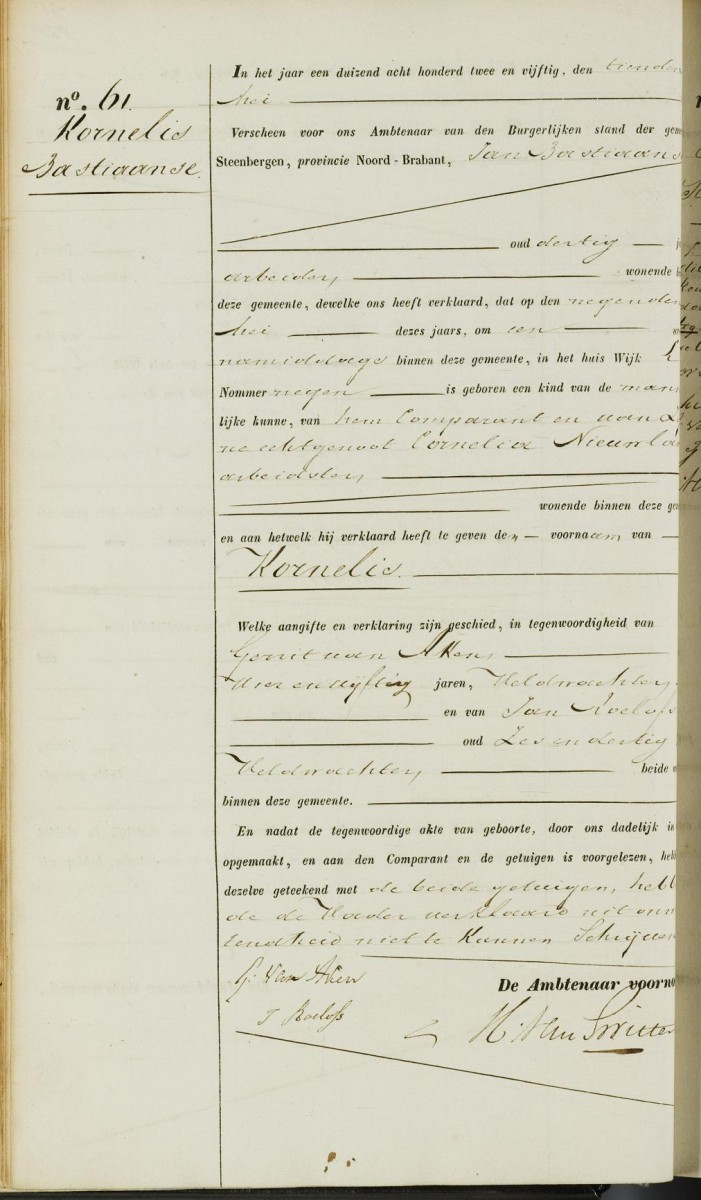 nº. 61.
Kornelis
Bastiaanse.
In het jaar een duizend acht honderd twee en vijftig, den tienden
Mei
Verscheen voor ons Ambtenaar van den Burgerlijken stand der gem
Steenbergen, provincie Noord-Brabant, Jan Bastiaans
oud dertig j
arbeider, wonende
deze gemeente, dewelke ons heeft verklaard, dat op den negenden
Mei dezes jaars, om een
namiddags binnen deze gemeente, in het huis Wijk
Nommer negen is geboren een kind van de man
lijke kunne, van hem Comparant en van Z
ne echtgenoot Cornelia Nieuwla
arbeidster,
wonende binnen deze ge
en aan hetwelk hij verklaard heeft te geven den voornaam van
Kornelis.
Welke aangifte en verklaring zijn geschied, in tegenwoordigheid van
Gerrit van Aken,
Vier en vijftig jaren, Veldwachter,
en van Jan Roelofs
oud Zes en dertig
Veldwachter, beide
binnen deze gemeente.
En nadat de tegenwoordige akte van geboorte, door ons dadelijk in
opgemaakt, en aan den Comparant en de getuigen is voorgelezen, heb
dezelve geteekend met de beide getuigen, hebb
de de Vader verklaard uit onn
tendheid niet te kunnen Schrijven
G. Van Aken
De Ambtenaar voorno
J Roelofs